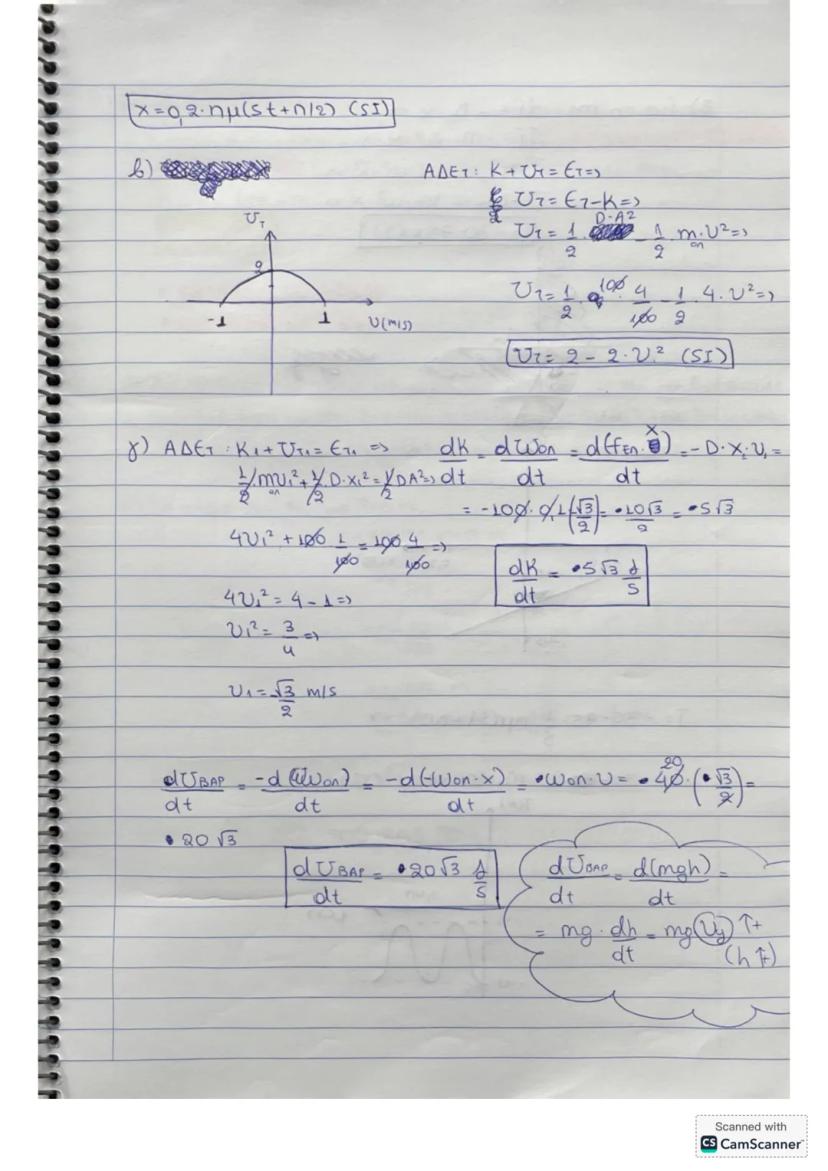 x = 0,2 · ημ(5t + π/2) (SI)
β)
ΑΔΕΤ: K + U_T = E_T =>
U_T = E_T - K =>
U_T = 1/2 D·A² - 1/2 m_ολ · υ² =>
U_T = 1/2 · 100 · 4/100 - 1/2 · 4 · υ² =>
U_T = 2 - 2 · υ² (SI)
U_T
2
-1 1 υ(m/s)
γ) ΑΔΕΤ: K₁ + U_T₁ = E_T₁ =>
1/2 m_ολ υ₁² + 1/2 · D · x₁² = 1/2 DA² =>
4υ₁² + 100 1/100 = 100 4/100 =>
4υ₁² = 4 - 1 =>
υ₁² = 3/4 =>
υ₁ = √3/2 m/s
dK/dt = dW_ολ/dt = d(F_επ · x)/dt = -D · x₁ · υ₁ =
= -100 · 0,1 (√3/2) = 10√3/2 = 5√3
dK/dt = 5√3 J/s
dU_ΒΑΡ/dt = -d(W_Wολ)/dt = -d(-W_ολ · x)/dt = W_ολ · υ = 40 20 · (√3/2) =
20√3
dU_ΒΑΡ/dt = 20√3 J/s
dU_ΒΑΡ/dt = d(mgh)/dt =
= mg · dh/dt = mg υy ↑+
(h ↑+)
Scanned with
CS CamScanner